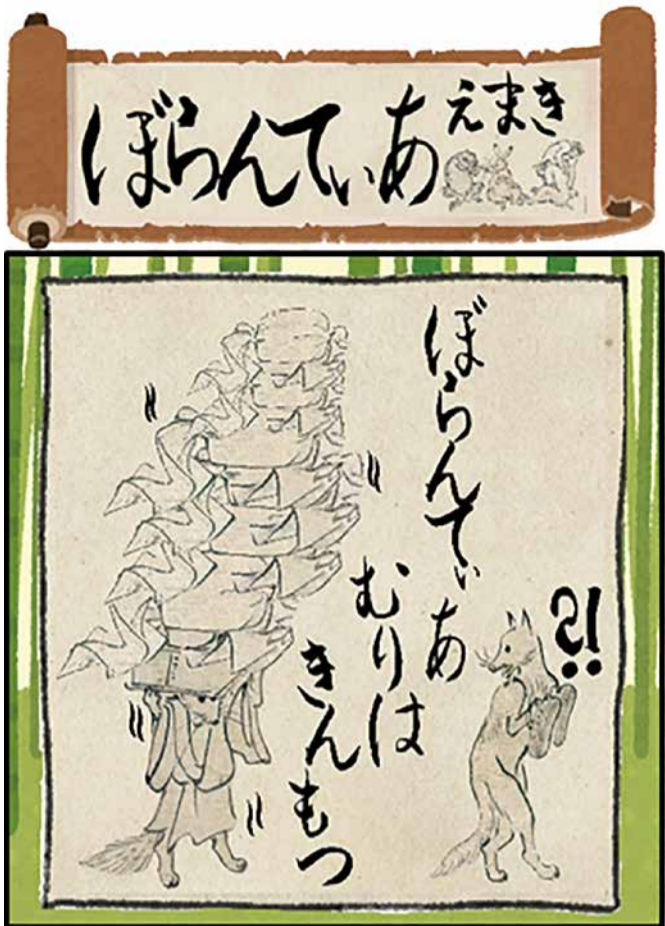 ぼらんてぃあ
えまき
ぼらんてぃあ
むりは
きんもつ
?!